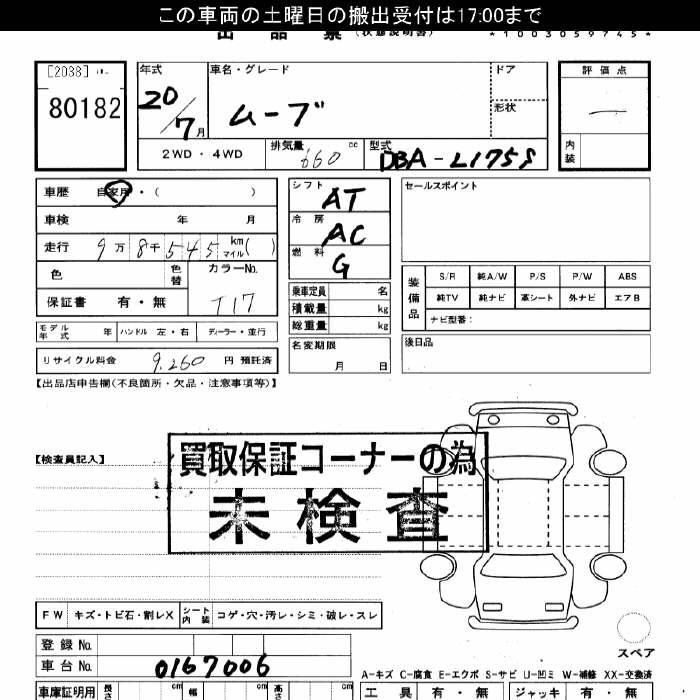 この車両の土曜日の搬出受付は17:00まで
出品票 (状態説明書) *1003059745*
[2038]
80182
年式 車名・グレード ドア 評価点
20/7月 ムーブ 形状
2WD・4WD 排気量 660 cc 型式 DBA-L175S 内装
車歴 自家用・( )
シフト AT セールスポイント
車検 年 月
冷房 AC
走行 9万8千545 km マイル( )
燃料 G
色 色替 カラーNo.
保証書 有・無 T17
乗車定員 名
積載量 kg
総重量 kg
装備品 S/R 純A/W P/S P/W ABS
純TV 純ナビ 革シート 外ナビ エアB
ナビ型番:
モデル年式 年 ハンドル 左・右 ディーラー・並行
名変期限 月 日
後日品
リサイクル料金 9,260 円 預託済
【出品店申告欄(不良箇所・欠品・注意事項等)】
【検査員記入】
買取保証コーナーの為
未検査
FW キズ・トビ石・割レX シート内装 コゲ・穴・汚レ・シミ・破レ・スレ
登録No.
車台No. 0167006
スペア
A-キズ C-腐食 E-エクボ S-サビ U-凹ミ W-補修 XX-交換済
車庫証明用 長さ cm 幅 cm 高さ cm
工具 有・無 ジャッキ 有・無